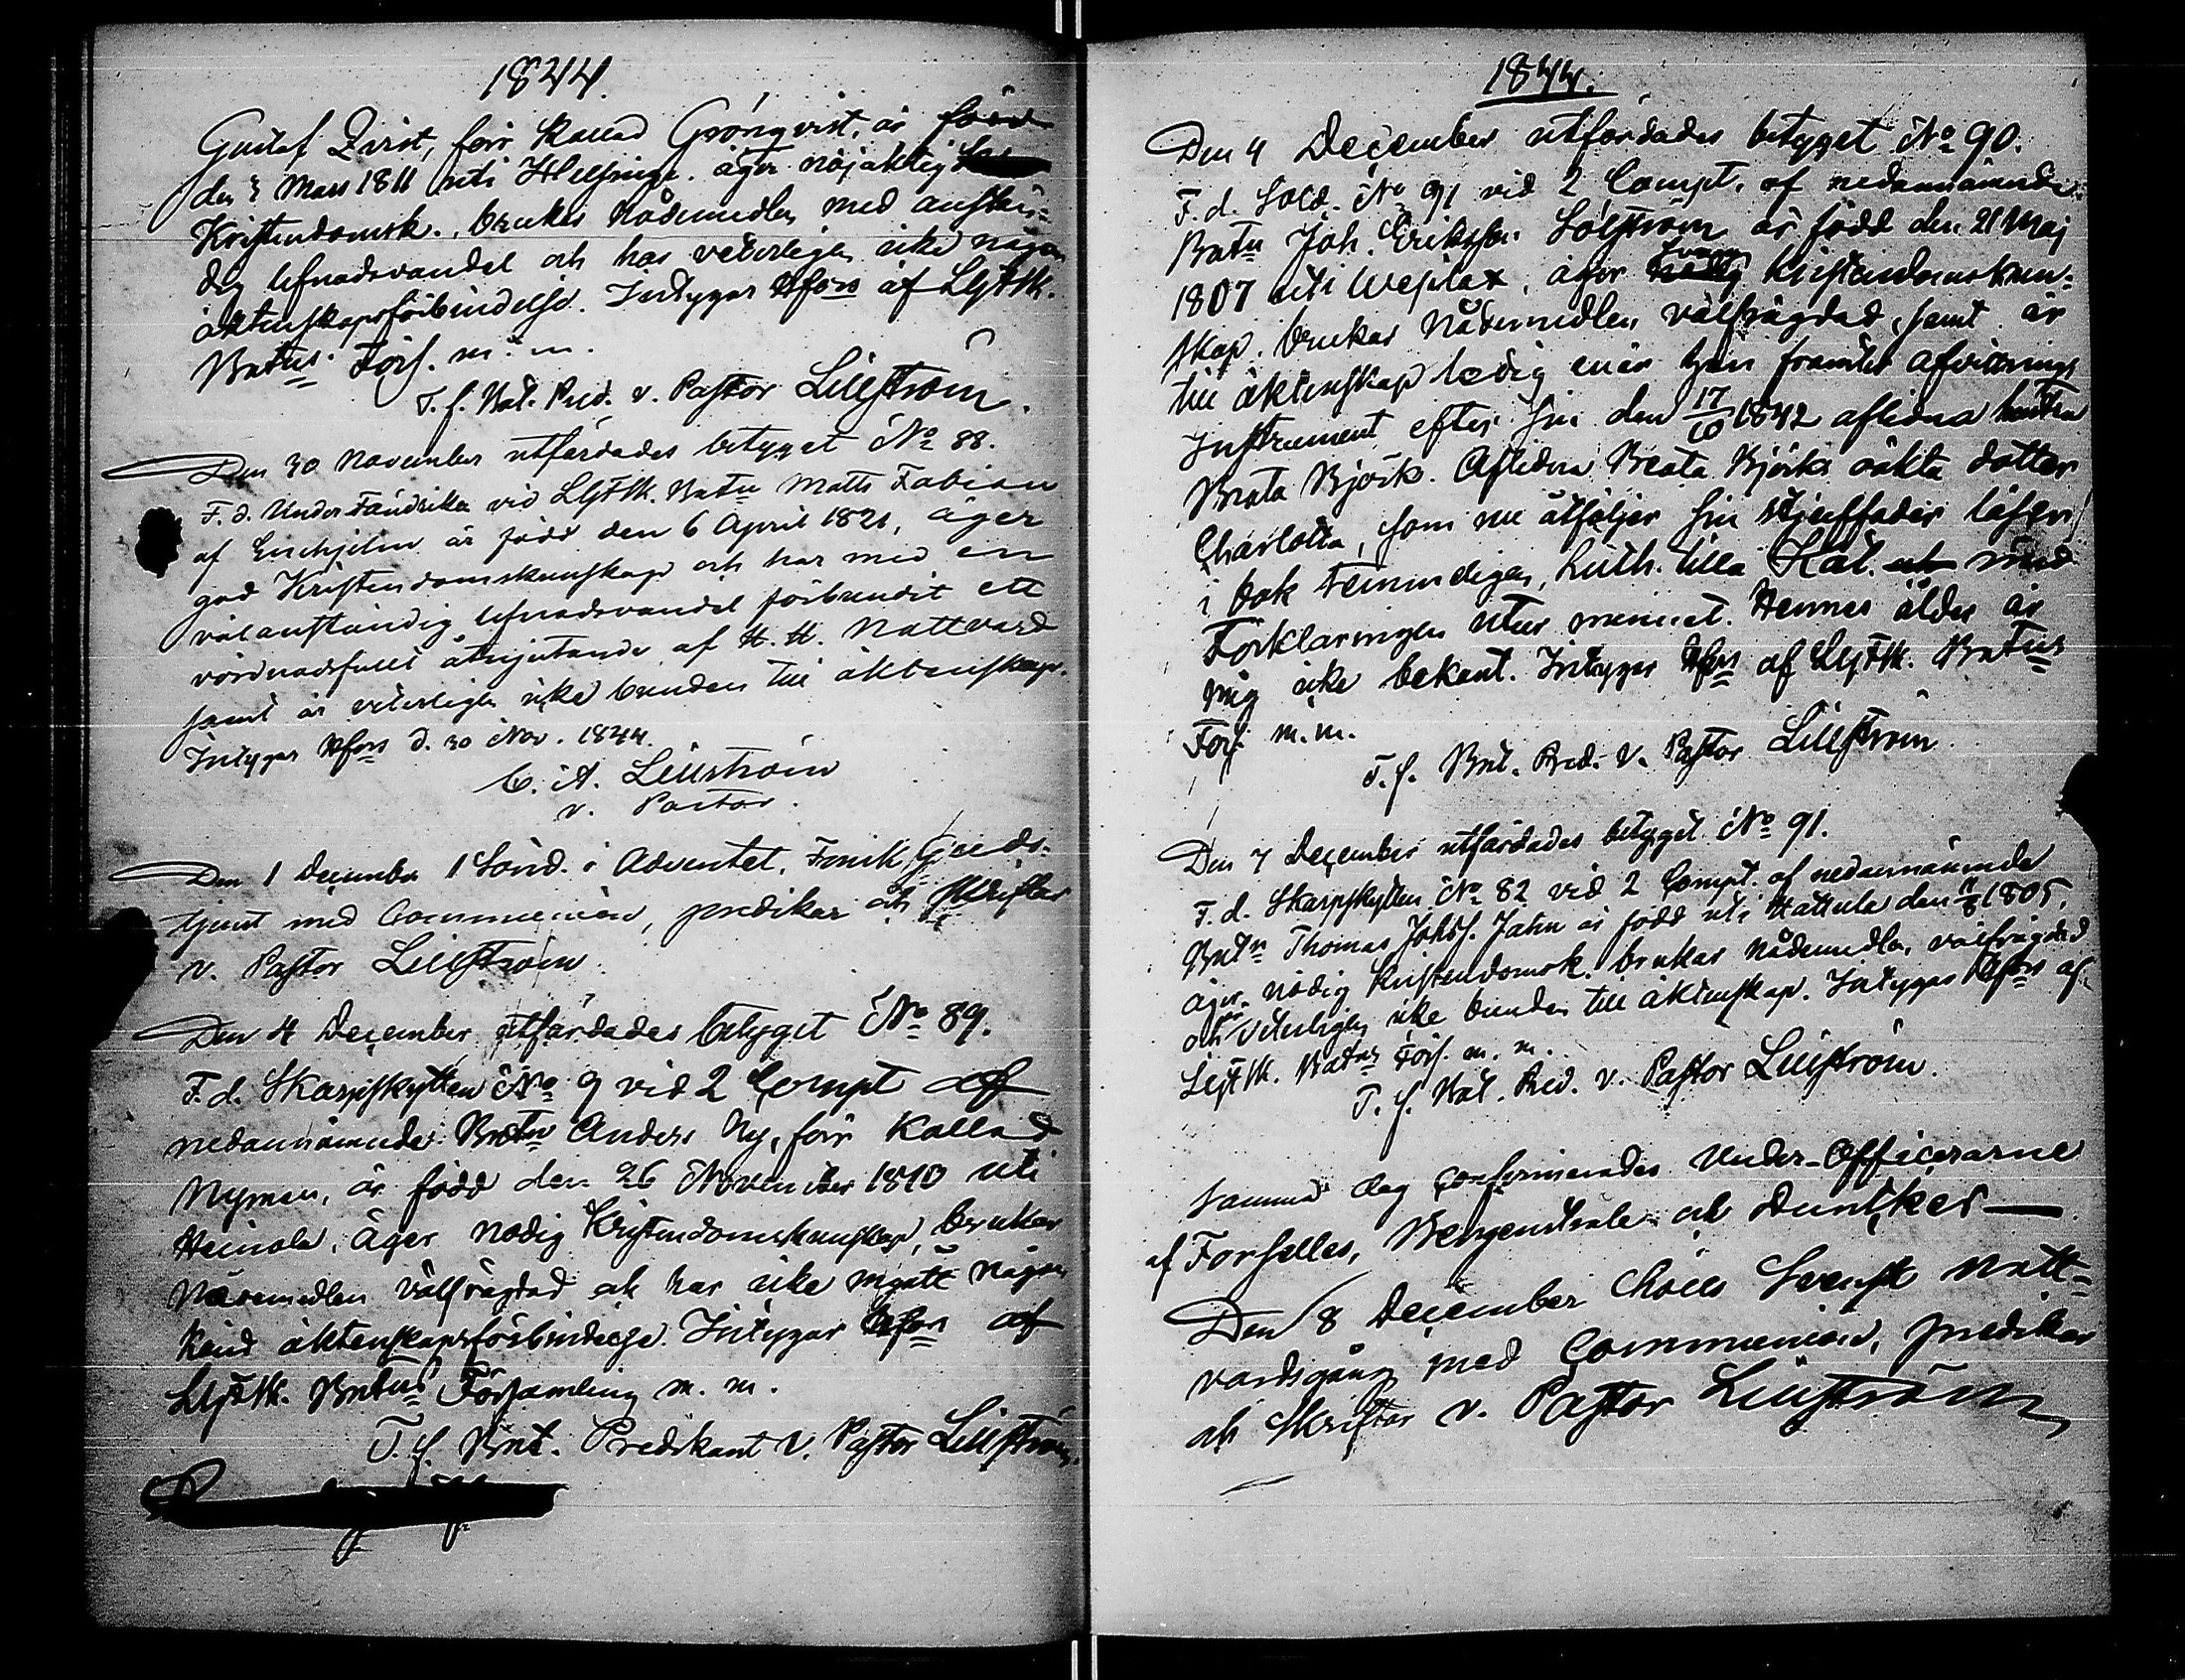 1844.
Gustaf Qvist, förr kallad Grönqvist, är född
den 3 Mars 1811 uti Helsinge. äger nöjaktig
Kristendomsk., brukar Nådemedlen med anstän-
dig lefnadsvandel och har veterligen icke någon
äktenskapsförbindelse. Intygar Hfors af LgFSk.
Batns Förs. m. m.
T. f. Bat. Pred. v. Pastor Lillström.
Den 30 November utfärdades betyget No 88.
F. d. Under Fändriken vid LgFSk. Batn Matts Fabian
af Enehjelm är född den 6 April 1821, äger
god Kristendomskunskap och har med en
välanständig lefnadsvandel förbundit ett
vördnadsfullt åtnjutande af H. H. Nattvard
samt är veterligen icke bunden till äktenskap.
Intygar Hfors d. 30 Nov. 1844.
C. A. Lillström
v. Pastor.
Den 1 December 1 Sönd. i Adventet, Finsk Guds-
tjenst med Communion, predikar och skriftar
v. Pastor Lillström
Den 4 December utfärdades betyget No 89.
F. d. Skarpskytten No 9 vid 2 Compt af
nedannämnde Batn Anders Ny, förr kallad
Nyman, är född den 26 November 1810 uti
Heinola, äger nödig Kristendomskunskap, brukar
Nådemedlen välfrägdad och har icke ingått någon
känd äktenskapsförbindelse. Intygar Hfors af
LgFSk. Batns Församling m. m.
T. f. Bat. Predikant v. Pastor Lillström.
1844.
Den 4 December utfärdades betyget No 90.
F. d. Sold. No 91 vid 2 Compt. af nedannämnde
Batn Joh. Eriksson Sölström är född den 21 Maj
1807 uti Wesilax, äger svag Kristendomskun-
skap, brukar Nådemedlen välfrägdad, samt är
till äktenskap ledig enär han framtet afvittrings
Instrument efter sin den 17/10 1842 aflidna hustru
Beata Björk. Aflidna Beata Björks oäkta dotter
Charlotta, som nu åtföljer sin stjuffader läser
i bok temmeligen, Luth. lilla Kat. med
Förklaringen utur minnet. Hennes ålder är
mig icke bekant. Intygar Hfors af LgFSk. Batns
Förs. m. m.
T. f. Bat. Pred. v. Pastor Lillström.
Den 7 December utfärdades betyget No 91.
F. d. Skarpskytten No 82 vid 2 Compt. af nedannämnde
Batn Thomas Johss. Jahn är född uti Hattula den 1805,
äger nödig Kristendomsk. brukar Nådemedlen välfrägdad
och är veterligen icke bunden till äktenskap. Intygar Hfors af
LgFSk. Batns Förs. m. m.
T. f. Bat. Pred. v. Pastor Lillström.
Samma dag confirmerades Under-Officerarne
af Forselles, Bergenstråle och Duncker
Den 8 December hölls Svensk Natt-
vardsgång med Communion, predikar
och Skriftar v. Pastor Lillström